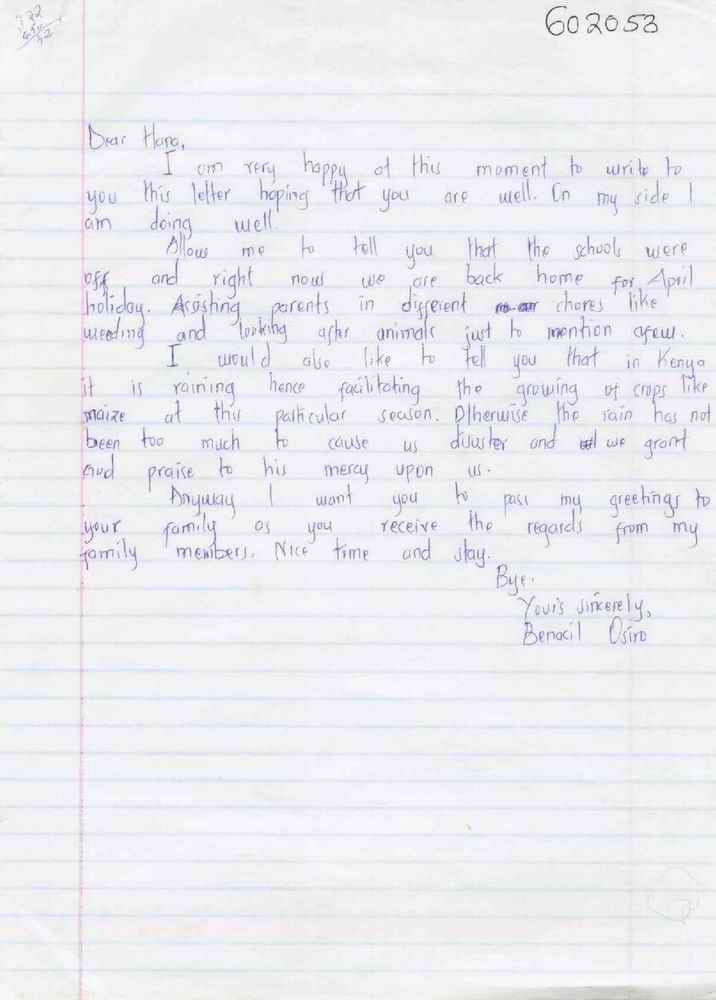 602053
Dear Hana,
I am very happy at this moment to write to
you this letter hoping that you are well. On my side I
am doing well.
Allow me to tell you that the schools were
off and right now we are back home for April
holiday. Assisting parents in different chores like
weeding and looking after animals just to mention afew.
I would also like to tell you that in Kenya
it is raining hence facilitating the growing of crops like
maize at this particular season. Otherwise the rain has not
been too much to cause us disaster and we grant
God praise to his mercy upon us.
Anyway I want you to pass my greetings to
your family as you receive the regards from my
family members. Nice time and stay.
Bye.
Your's sincerely,
Benacil Osiro